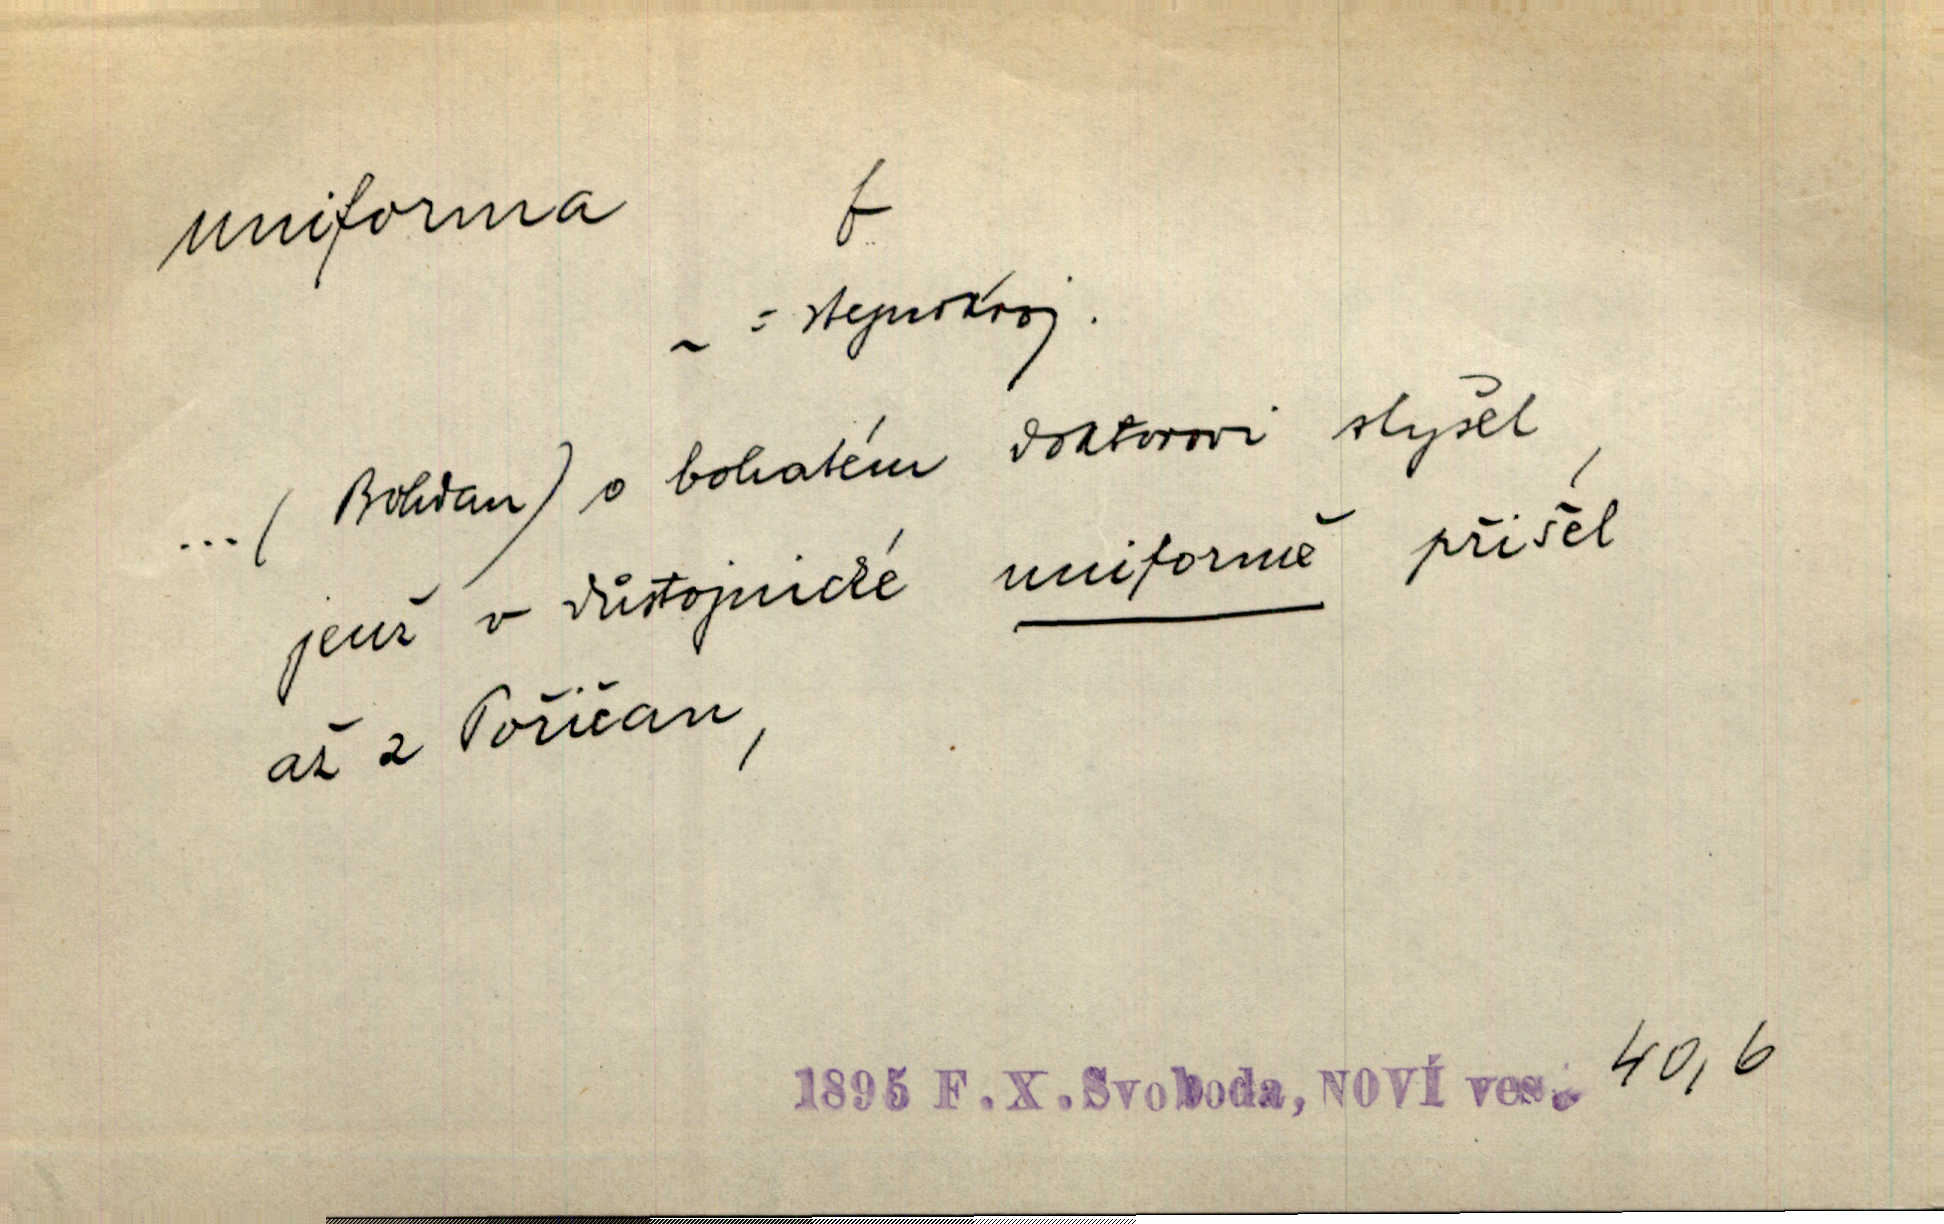 uniforma f
~ = stejnokroj.
... (Bohdan) o bohatém doktorovi slyšel,
jenž v důstojnické uniformě přišel
až z Poříčan,
1895 F.X.Svoboda, NOVÍ ves. 40,6